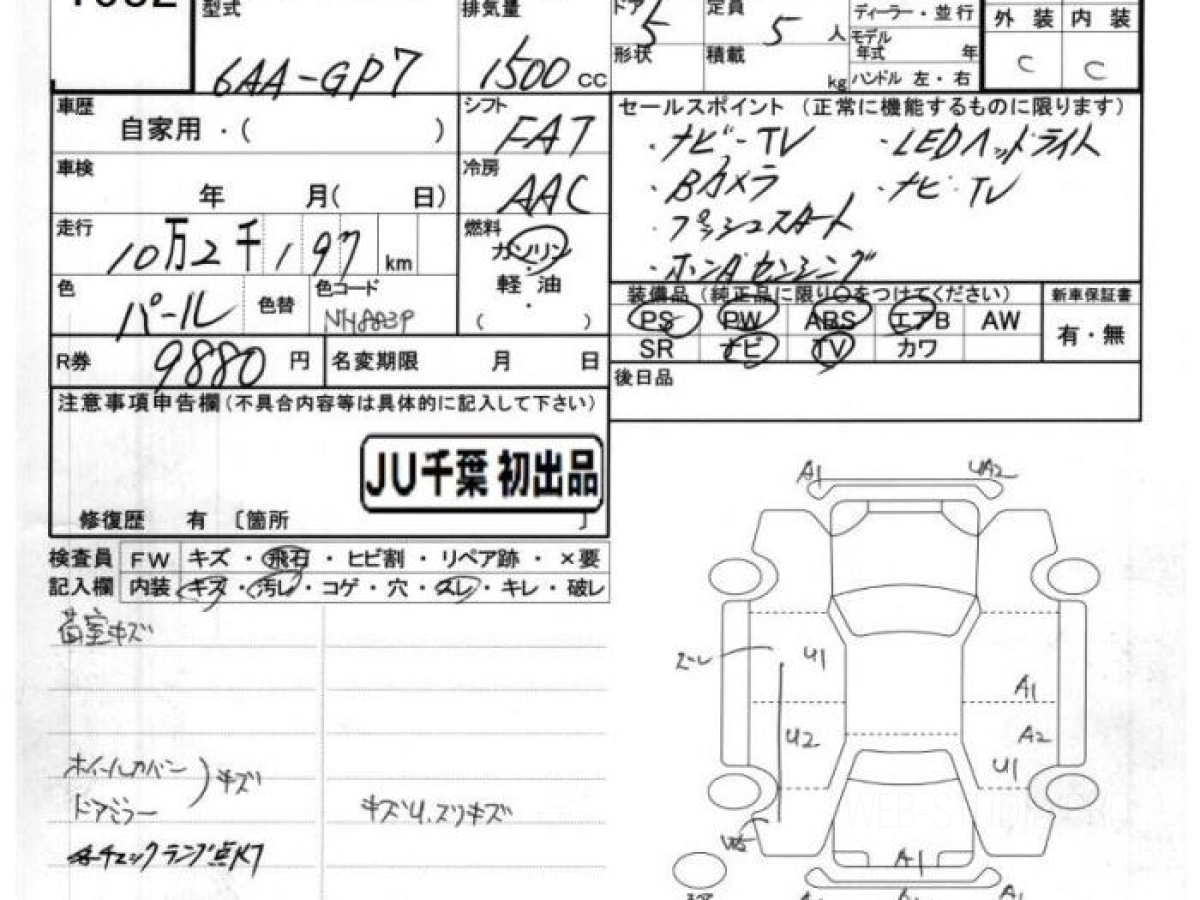 型式 排気量 ドア 5 定員 5 人 ディーラー・並行 外装 内装
6AA-GP7 1500 cc 形状 積載 kg モデル年式 年 C C
ハンドル 左・右
車歴 自家用・( ) シフト FAT セールスポイント (正常に機能するものに限ります)
・ナビ-TV ・LEDヘッドライト
車検 年 月( 日) 冷房 AAC ・Bカメラ ・ナビ・TV
・プッシュスタート
走行 10万2千197 km 燃料 ガソリン ・ホンダセンシング
軽油・( )
色 パール 色替 色コード NH883P
装備品 (純正品に限り○をつけてください) 新車保証書
PS PW ABS エアB AW 有・無
SR ナビ TV カワ
R券 9880 円 名変期限 月 日
後日品
注意事項申告欄(不具合内容等は具体的に記入して下さい)
JU千葉 初出品
修復歴 有 〔箇所 〕
検査員 FW キズ・飛石・ヒビ割・リペア跡・×要
記入欄 内装 キズ・汚レ・コゲ・穴・スレ・キレ・破レ
荷室キズ
ホイールカバー
ドアミラー
キズ
キズU、スリキズ
チェックランプ点灯
A1 UA2
U1
A1
U2 A2
U1
A1
A1
WEB-STUDIO